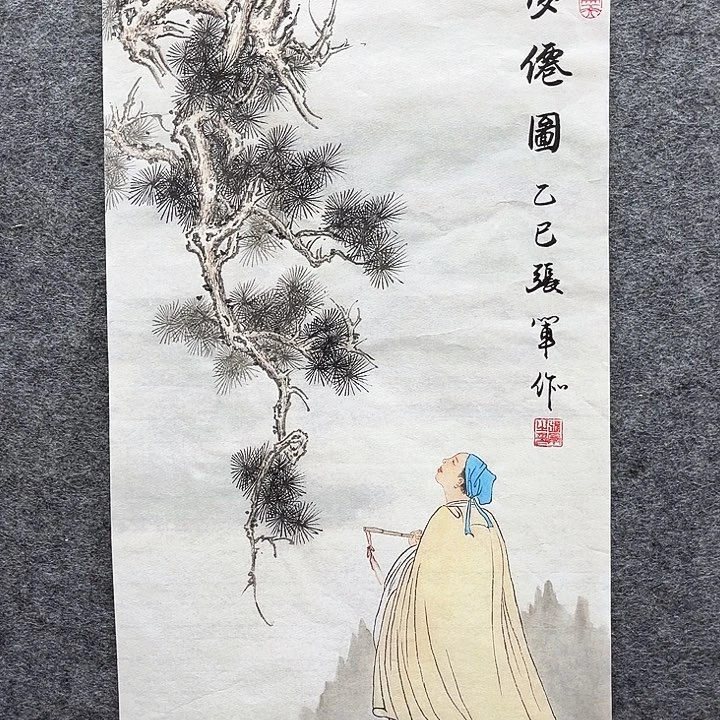 僊圖乙巳張單作